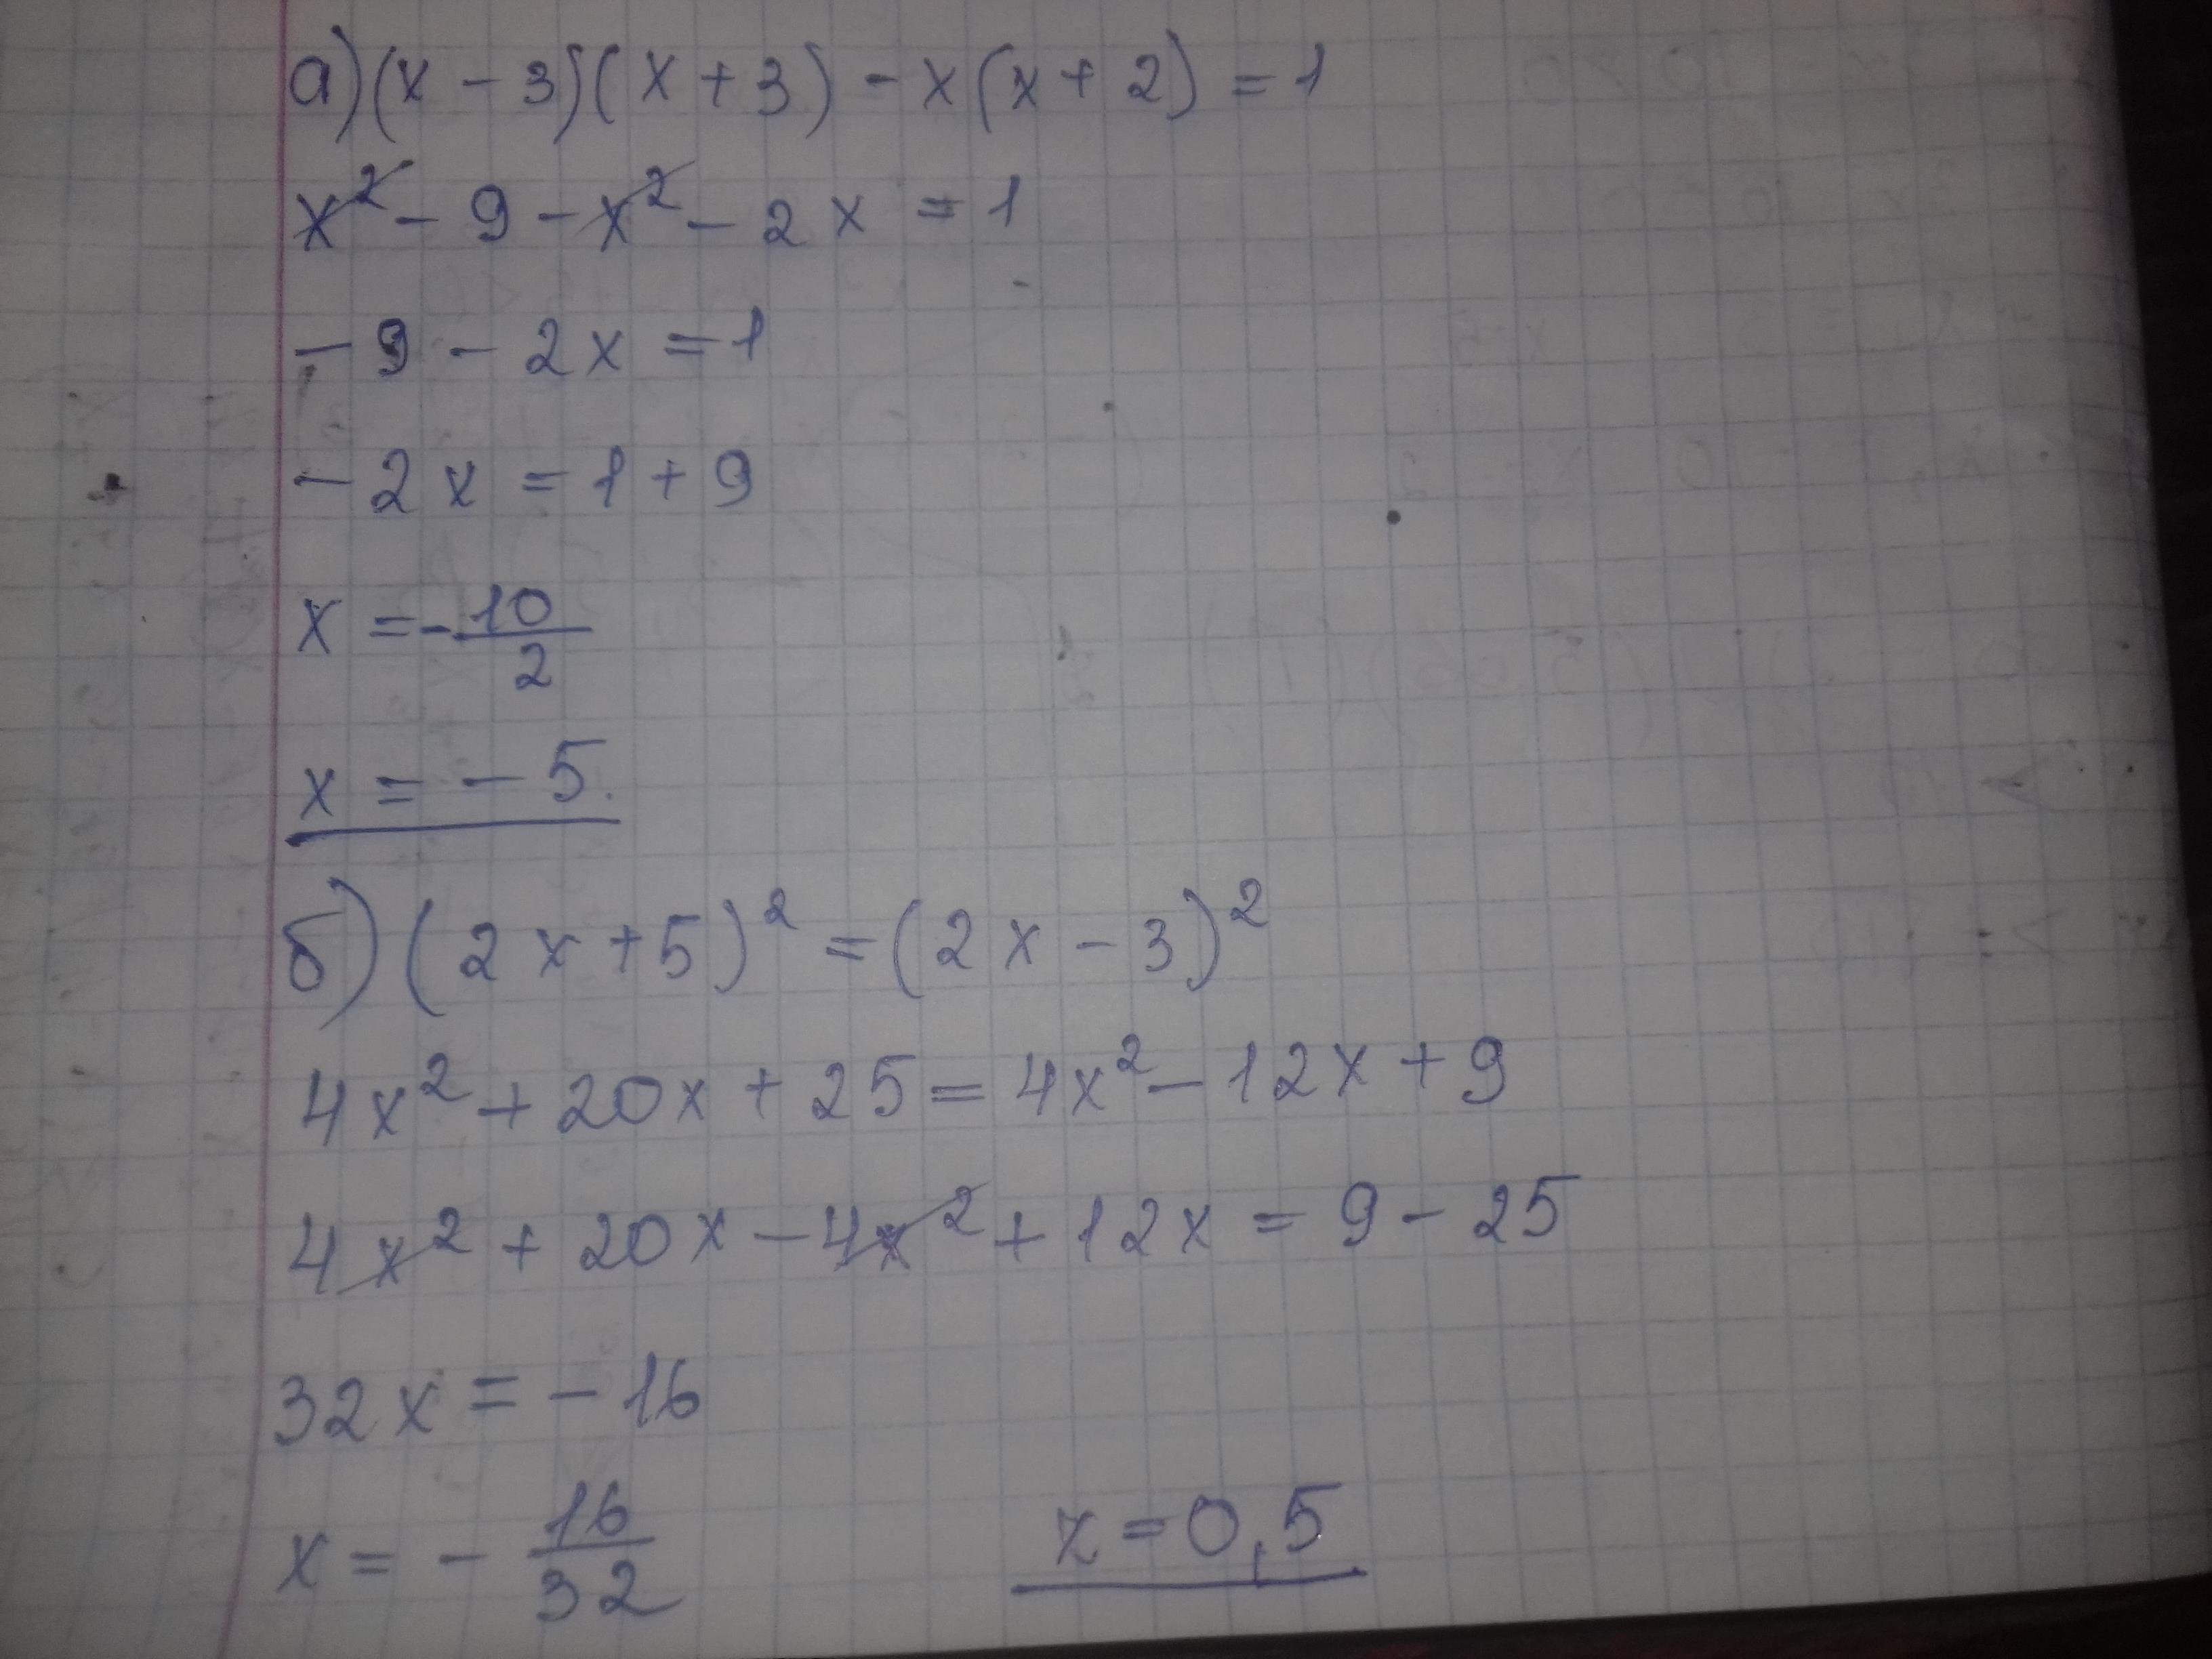 а) (x - 3)(x + 3) - x(x + 2) = 1
x² - 9 - x² - 2x = 1
- 9 - 2x = 1
- 2x = 1 + 9
x = - 10/2
x = - 5.
б) (2x + 5)² = (2x - 3)²
4x² + 20x + 25 = 4x² - 12x + 9
4x² + 20x - 4x² + 12x = 9 - 25
32x = - 16
x = - 16/32 x = 0,5